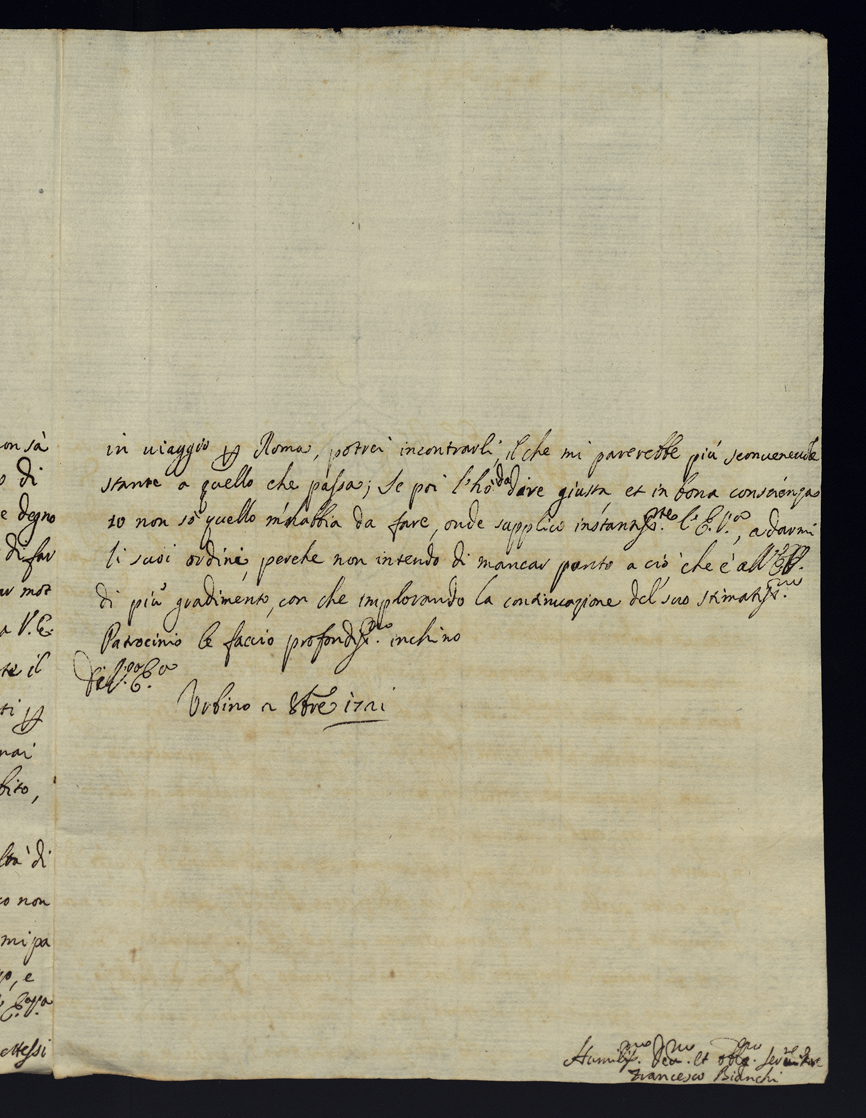 on sà
di
e degno
di far
ar mot
a V.E.
te il
ti
mai
bito,
ltà di
co non
mi pa
e
messi
in uiaggio p Roma, potrei incontrarli, il che mi parerebbe più sconueneuole
stante a quello che passa; Se poi l'hò da dire giusta et in bona conscienza
io non sò quello m'habbia da fare, onde supplico instantisste. l'E.V.a, a darmi
li suoi ordini, perche non intendo di mancar punto a ciò che è all'
di più gradimento, con che implorando la continuazione del suo stimatissmo.
Patrocinio le faccio profondissmo. inchino
Di V.ra E.za
Urbino 2 8bre 1721
Humiliss.mo Deu.mo et obbl.mo Seruitore
Francesco Bianchi